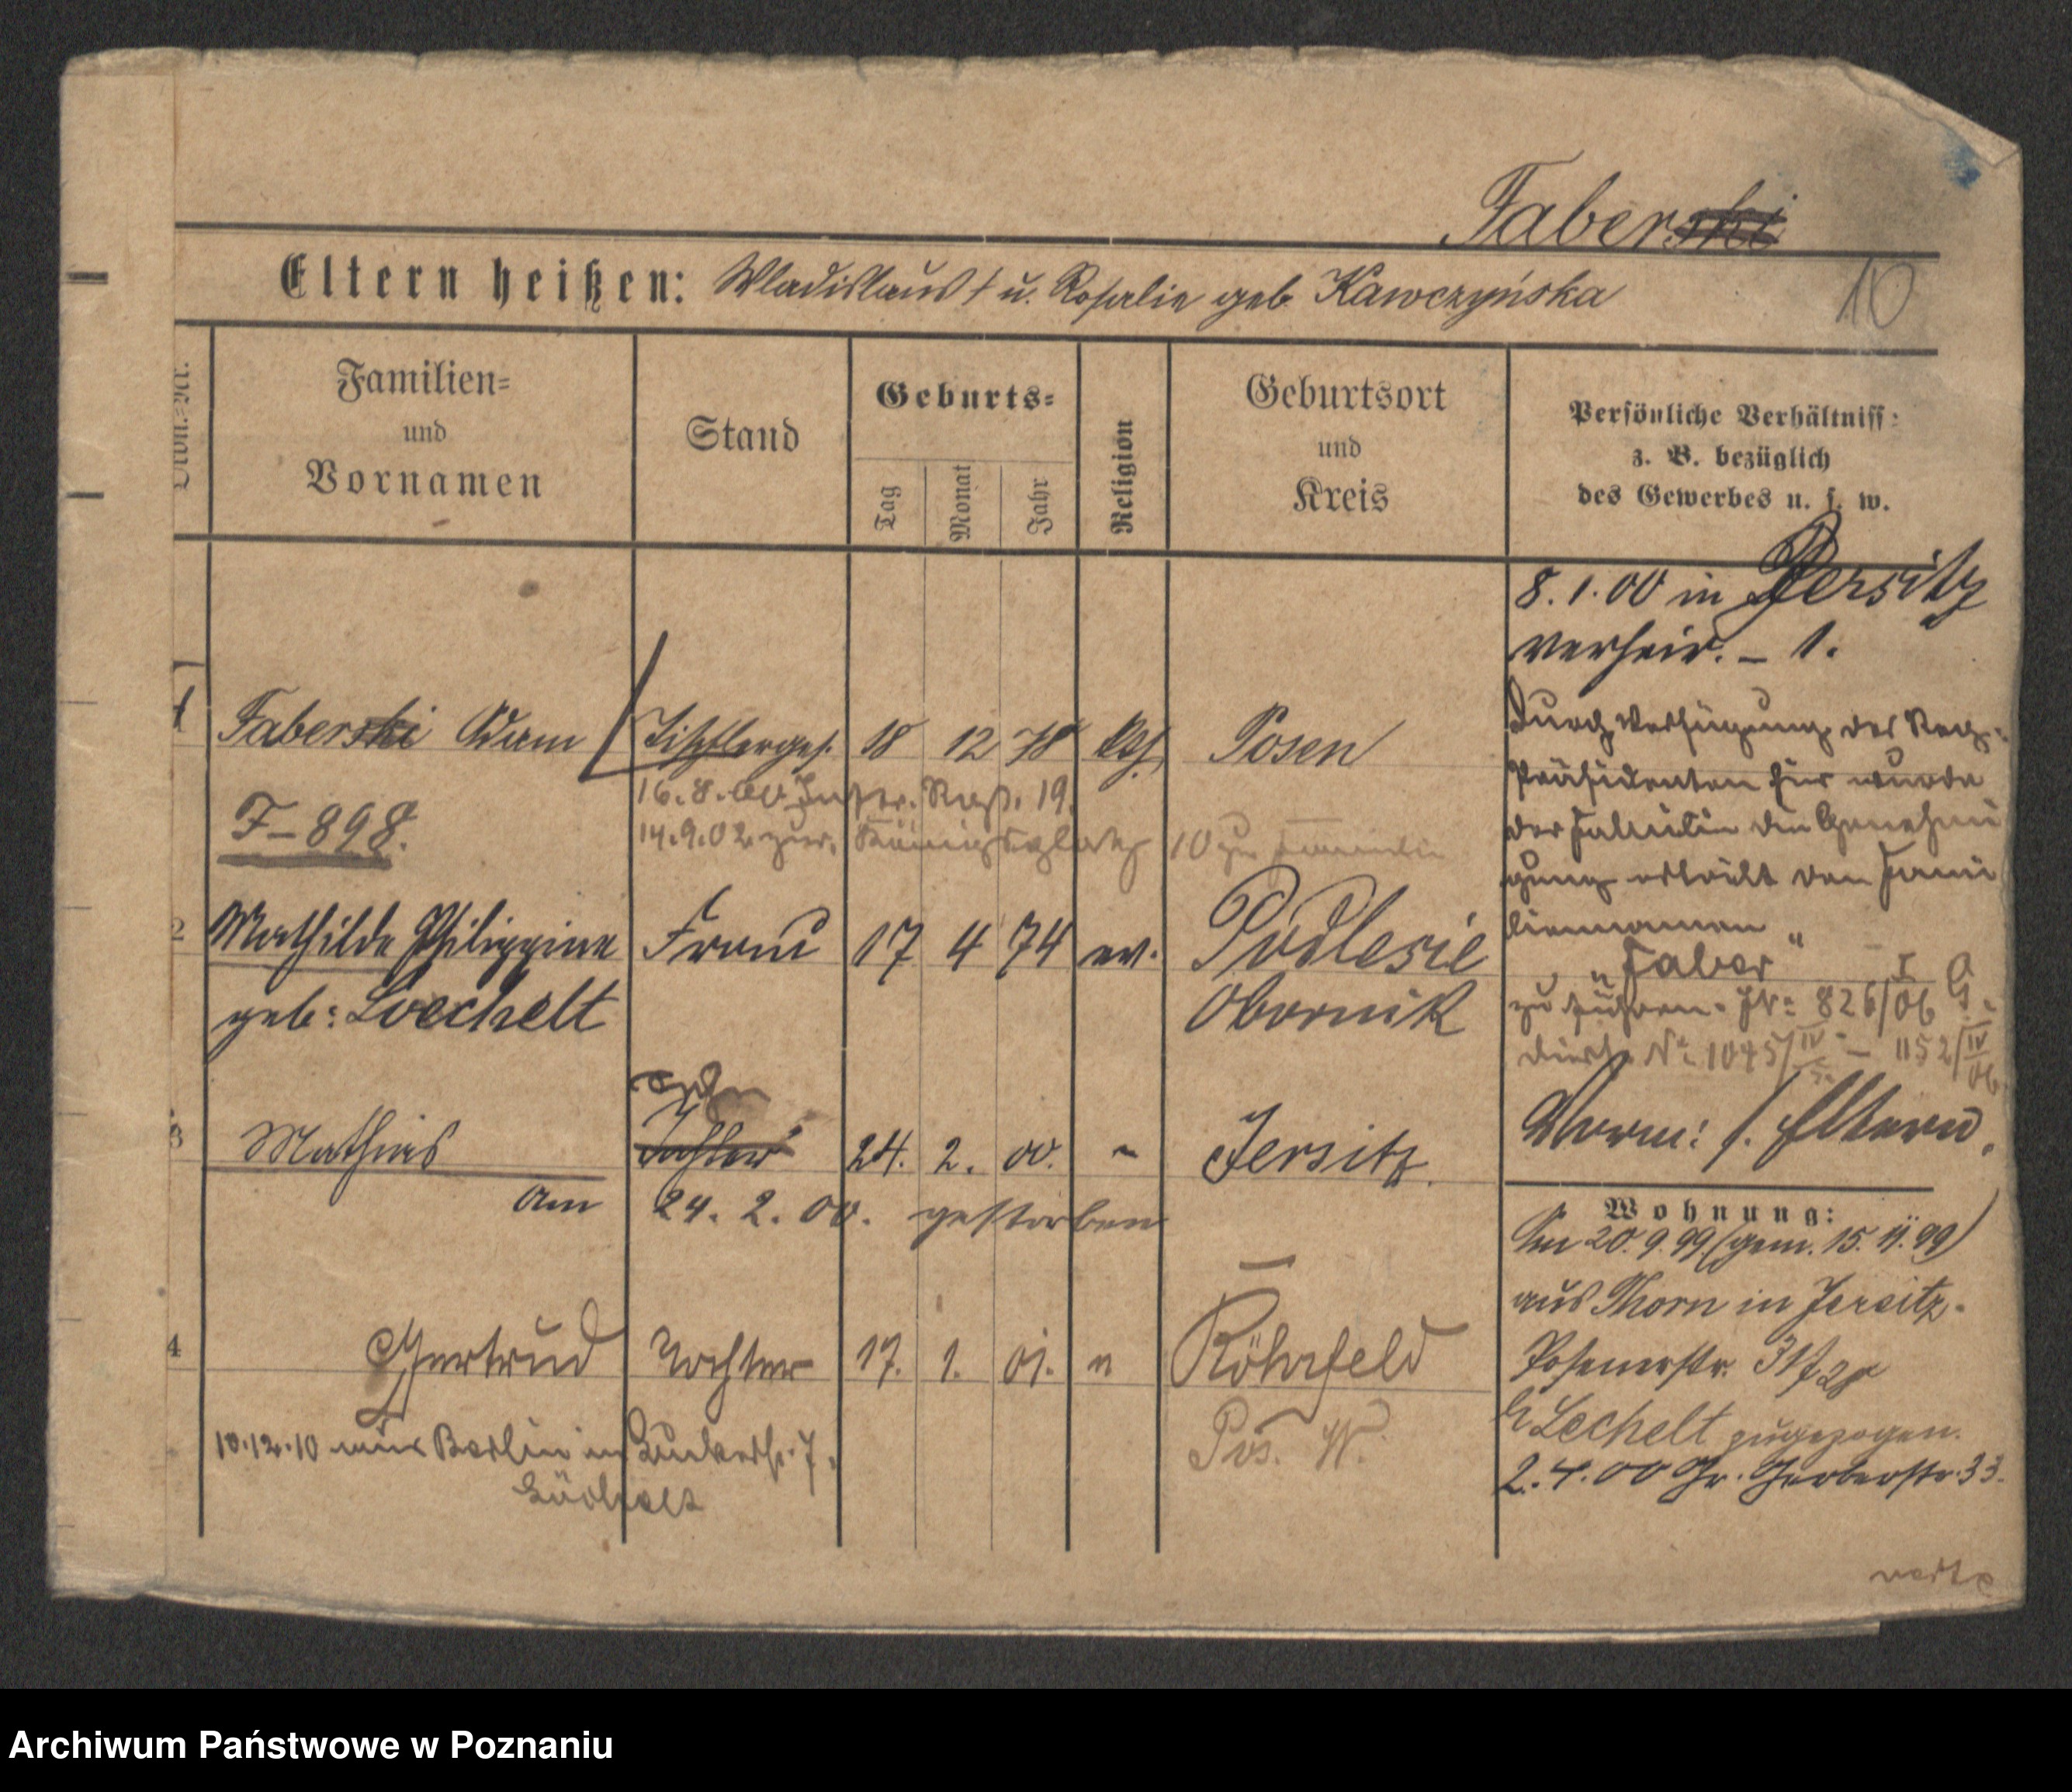 Faberski
Eltern heißen: Wladislaus † u. Rosalie geb. Kawczyńska
10
Familien=
und
Vornamen
Stand
Geburts=
Tag
Monat
Jahr
Religion
Geburtsort
und
Kreis
Persönliche Verhältniss=
z. B. bezüglich
des Gewerbes u. s. w.
8.1.00 in Jersitz
verheir. – 1.
1 Faberski Adam Tischlerges. 18 12 78 kath. Posen
16.8.00 Nr. 19.
14.9.02 Königsplatz 10
F–898.
Durch Verfügung des Reg.=
Präsidenten hier wurde
der Familie die Genehmi
gung erteilt den Fami
liennamen
„Faber"
zu führen. 826/06 I G.
No 1045/IV – 1152/IV 06
2 Mathilde Philippine Frau 17 4 74 ev. Podlesie
geb: Loechelt Obornik
3 Mathias Sohn Tochter 24. 2. 00. " Jersitz.
am 24. 2. 00. gestorben
Vorm: s. Eltern.
Wohnung:
Am 20.9.99. (gem. 15.11.99)
aus Thorn in Jersitz.
Posenerstr. 31
b/ Lechelt zugezogen.
2.4.00 Gr. Gerberstr. 33.
4 Gertrud Tochter 17. 1. 01. " Röhrfeld
Pos. W.
10.12.10 aus Berlin in 7.
verte
Archiwum Państwowe w Poznaniu